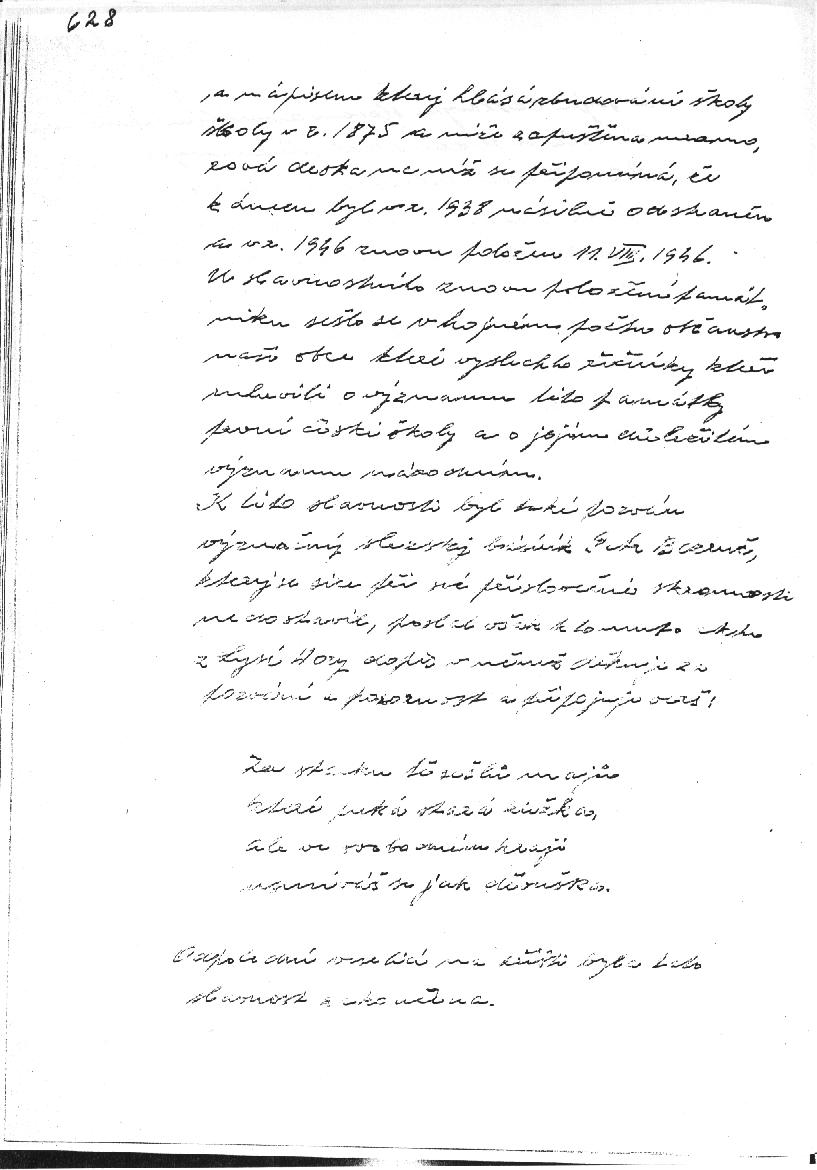 628
a nápisem který hlásá zbudování školy
školy v r. 1875 a níže zapuštěna mramo,
rová deska na níž se připomíná, že
kámen byl v r. 1938 násilně odstraněn
a v r. 1946 znovu položen 11. VIII. 1946.
K slavnostního znovu položení památ,
níku sešlo se v hojném počtu občanstvo
naší obce které vyslechlo řečníky kteří
mluvili o významu této památky
první české školy a o jejím důležitém
významu národním.
K této slavnosti byl také pozván
význačný slezský básník Petr Bezruč,
který se sice při své příslovečné skromnosti
nedostavil, poslal však k tomuto aktu
z Lysé Hory dopis v němž děkuje za
pozvání a pozornost a připojuje verš:
Za starku těšili mají
které puká stará
ale ve svobodném kraji
usmíváš se jak děvuška.
Odpolední veselicí na hřišti byla tato
slavnost zakončena.